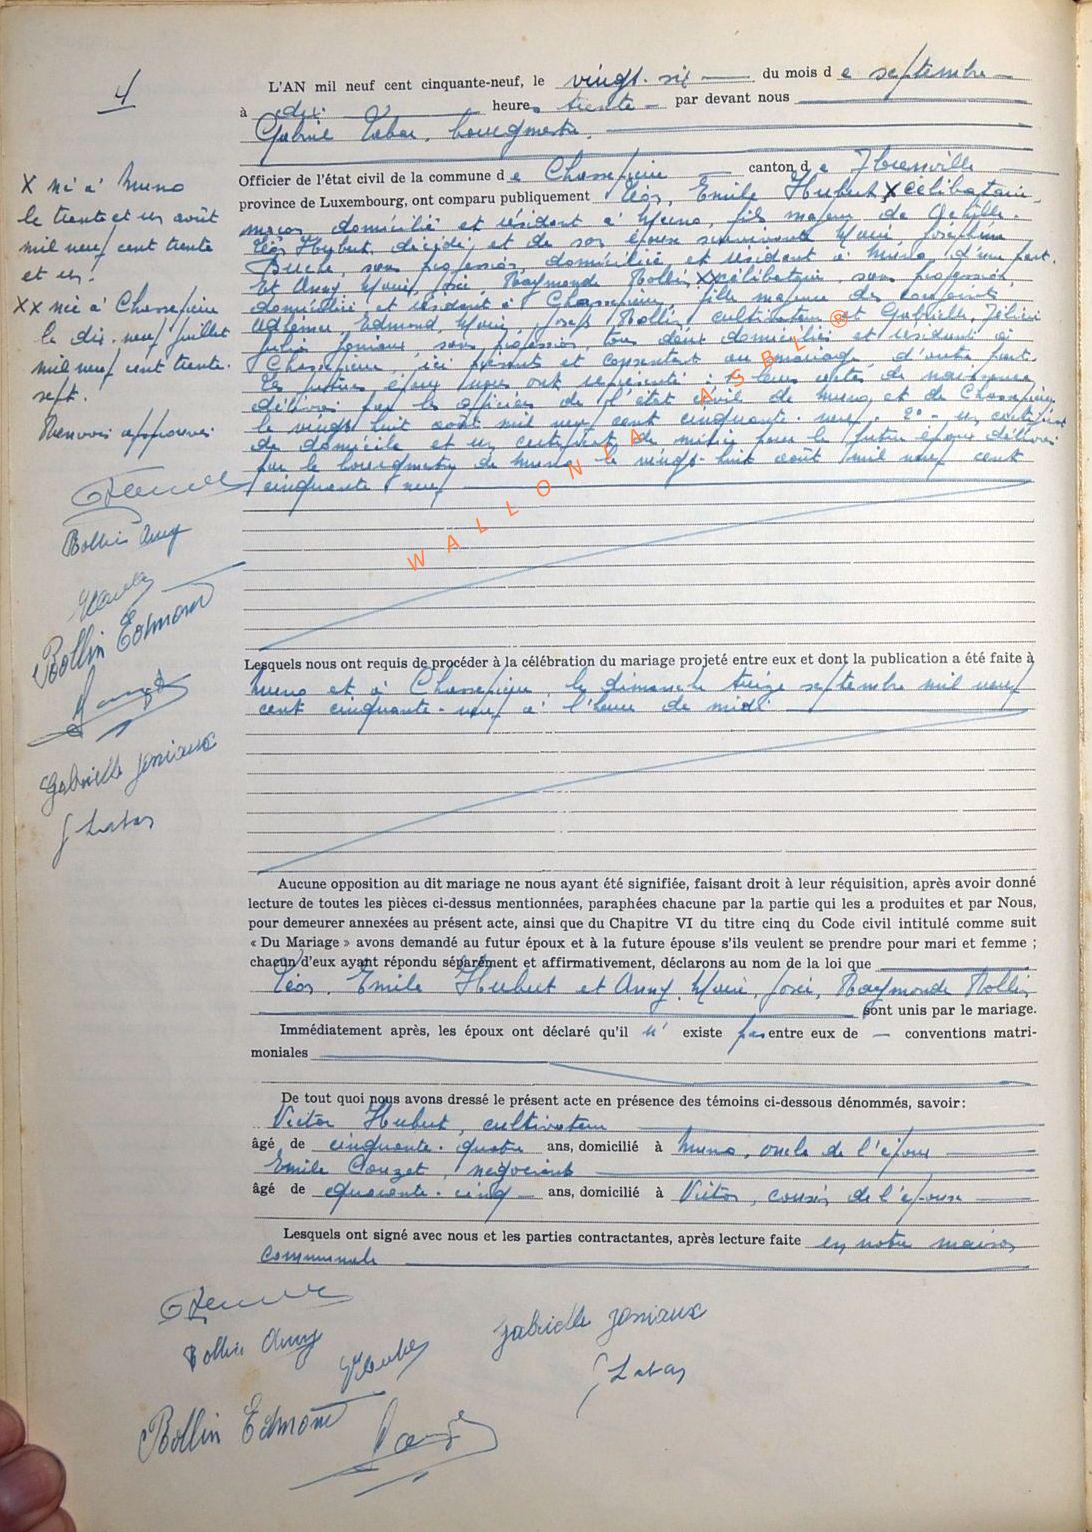 4
L'AN mil neuf cent cinquante-neuf, le vingt-six du mois de septembre
à dix heures trente par devant nous
Gabriel Labar, bourgmestre.
Officier de l'état civil de la commune de Chassepierre canton de Florenville
province de Luxembourg, ont comparu publiquement Léon, Emile Hubert X célibataire
maçon domicilié et résidant à Muno, fils majeur de Achille
Léon Hubert, décédé, et de son épouse survivante Marie Josephine
sans profession domiciliée et résidant à Muno, d'une part.
Et Anny, Marie, José, Raymonde Rollin XX célibataire, sans profession
domiciliée et résidant à Chassepierre, fille majeure des conjoints
Adhemar, Edmond, Marie, Joseph Rollin, cultivateur et Gabrielle, Félicie
Julia Joniaux sans profession, tous deux domiciliés et résidant à
Chassepierre, ici présents et consentant au mariage d'autre part.
Les futurs époux nous ont représenté : 1° leurs actes de naissance
délivrés par les officiers de l'état civil de Muno et de Chassepierre
le vingt huit août mil neuf cent cinquante-neuf. 2° - un certificat
de domicile et un certificat de milice pour le futur époux délivrés
par le bourgmestre de Muno le vingt-huit août mil neuf cent
cinquante neuf
X né à Muno
le trente et un août
mil neuf cent trente
et un.
XX née à Chassepierre
le dix-neuf juillet
mil neuf cent trente-
sept.
Renvois approuvés
Rollin Anny
Rollin Edmond
Gabrielle Joniaux
G Labar
WALLONIA ASBL ®
Lesquels nous ont requis de procéder à la célébration du mariage projeté entre eux et dont la publication a été faite à
Muno et à Chassepierre, le dimanche treize septembre mil neuf
cent cinquante-neuf à l'heure de midi
Aucune opposition au dit mariage ne nous ayant été signifiée, faisant droit à leur réquisition, après avoir donné
lecture de toutes les pièces ci-dessus mentionnées, paraphées chacune par la partie qui les a produites et par Nous,
pour demeurer annexées au présent acte, ainsi que du Chapitre VI du titre cinq du Code civil intitulé comme suit
« Du Mariage » avons demandé au futur époux et à la future épouse s'ils veulent se prendre pour mari et femme ;
chacun d'eux ayant répondu séparément et affirmativement, déclarons au nom de la loi que
Léon, Emile Hubert et Anny, Marie, José, Raymonde Rollin
sont unis par le mariage.
Immédiatement après, les époux ont déclaré qu'il n' existe pas entre eux de — conventions matri-
moniales
De tout quoi nous avons dressé le présent acte en présence des témoins ci-dessous dénommés, savoir :
Victor Hubert, cultivateur
âgé de cinquante-quatre ans, domicilié à Muno, oncle de l'époux
Emile Couzet, négociant
âgé de quarante-cinq ans, domicilié à Virton, cousin de l'épouse
Lesquels ont signé avec nous et les parties contractantes, après lecture faite en notre maison
communale
Rollin Anny
Gabrielle Joniaux
G Labar
Rollin Edmond